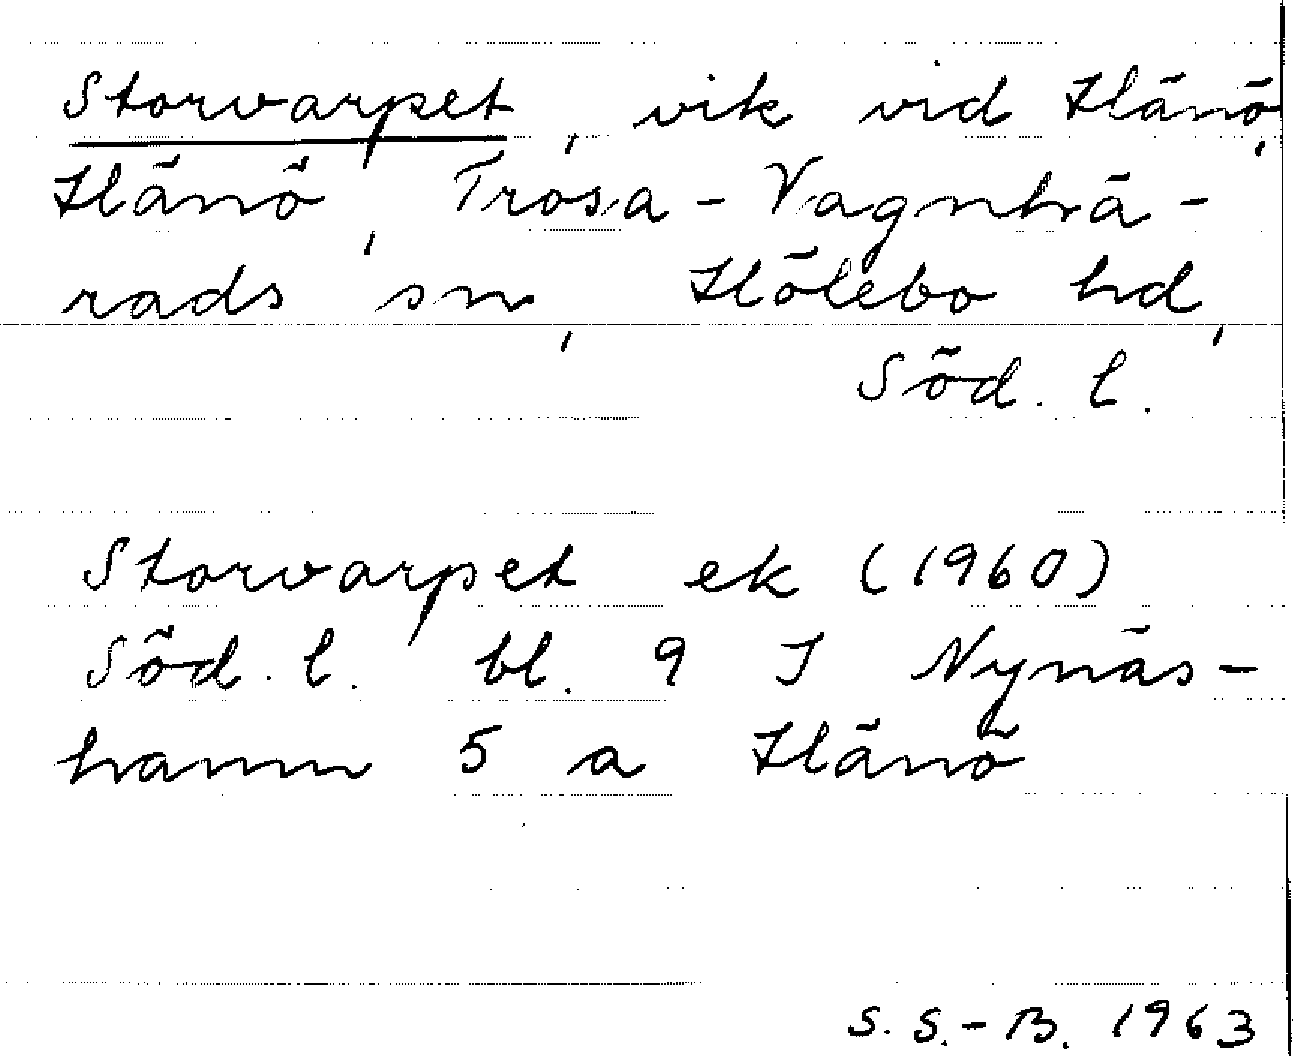 Storvarpet, vik vid Hänö,
Hänö, Trosa-Vagnhä-
rads sn, Hölebo hd,
Söd. l.
Storvarpet ek (1960)
Söd. l. bl. 9 I Nynäs-
hamn 5 a Hänö
S. S.-B. 1963